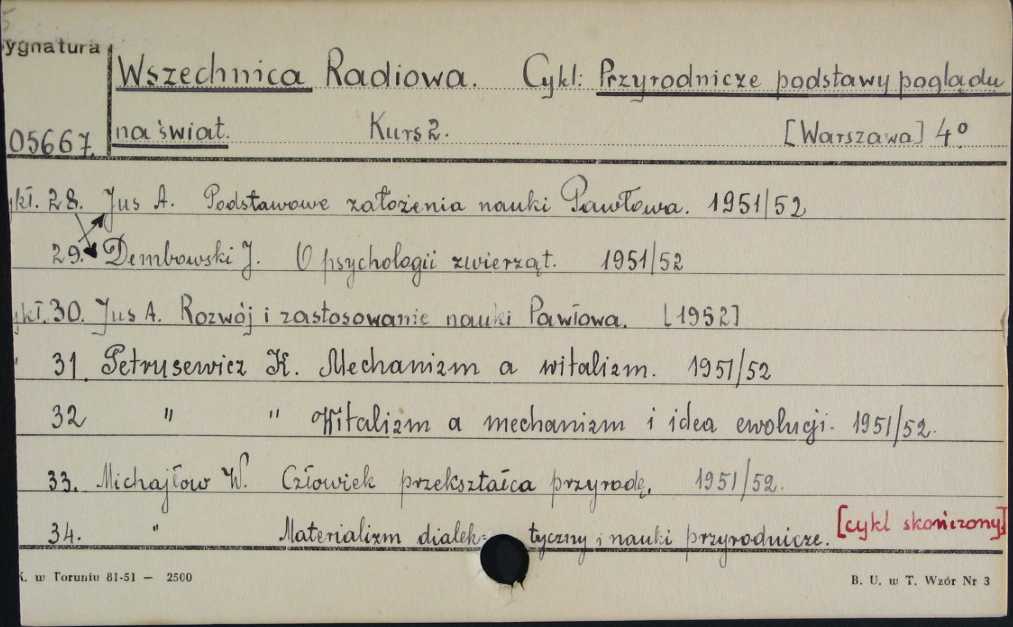 5
ygnatura
Wszechnica Radiowa. Cykl: Przyrodnicze podstawy poglądu
05667. na świat. Kurs 2. [Warszawa] 4º
ykł. 28. Jus A. Podstawowe założenia nauki Pawłowa. 1951/52
29. Dembowski J. O psychologii zwierząt. 1951/52
ykł. 30. Jus A. Rozwój i zastosowanie nauki Pawłowa. [1952]
" 31. Petrusewicz K. Mechanizm a witalizm. 1951/52
32 " " Witalizm a mechanizm i idea ewolucji. 1951/52.
33. Michajłow W. Człowiek przekształca przyrodę. 1951/52.
34. " Materializm dialek- tyczny i nauki przyrodnicze. [cykl skończony]
K. w Toruniu 81-51 — 2500 B. U. w T. Wzór Nr 3